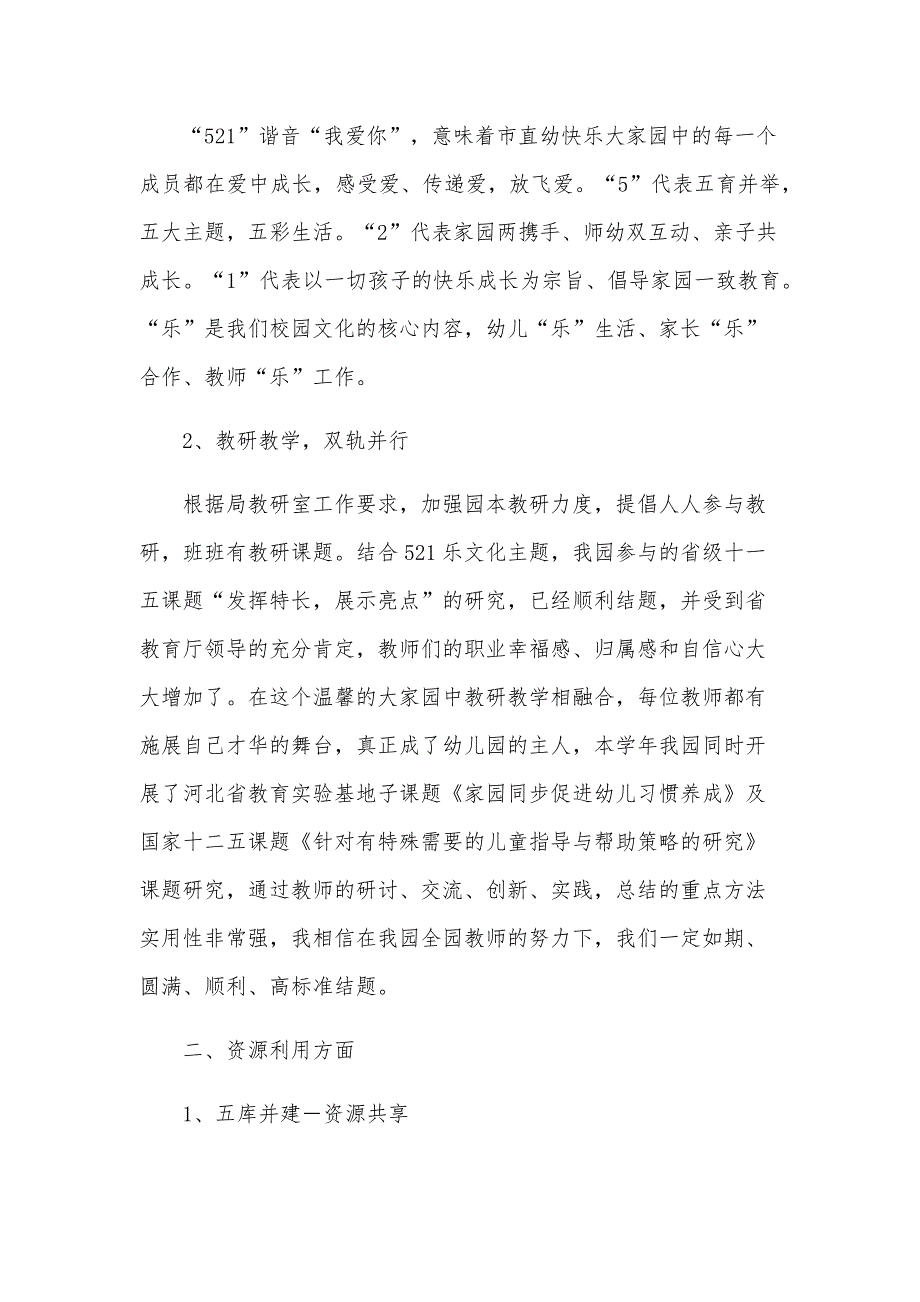 “521”谐音“我爱你”，意味着市直幼快乐大家园中的每一个
成员都在爱中成长，感受爱、传递爱，放飞爱。“5”代表五育并举，
五大主题，五彩生活。“2”代表家园两携手、师幼双互动、亲子共
成长。“1”代表以一切孩子的快乐成长为宗旨、倡导家园一致教育。
“乐”是我们校园文化的核心内容，幼儿“乐”生活、家长“乐”
合作、教师“乐”工作。
2、教研教学，双轨并行
根据局教研室工作要求，加强园本教研力度，提倡人人参与教
研，班班有教研课题。结合 521 乐文化主题，我园参与的省级十一
五课题“发挥特长，展示亮点”的研究，已经顺利结题，并受到省
教育厅领导的充分肯定，教师们的职业幸福感、归属感和自信心大
大增加了。在这个温馨的大家园中教研教学相融合，每位教师都有
施展自己才华的舞台，真正成了幼儿园的主人，本学年我园同时开
展了河北省教育实验基地子课题《家园同步促进幼儿习惯养成》及
国家十二五课题《针对有特殊需要的儿童指导与帮助策略的研究》
课题研究，通过教师的研讨、交流、创新、实践，总结的重点方法
实用性非常强，我相信在我园全园教师的努力下，我们一定如期、
圆满、顺利、高标准结题。
二、资源利用方面
1、五库并建－资源共享